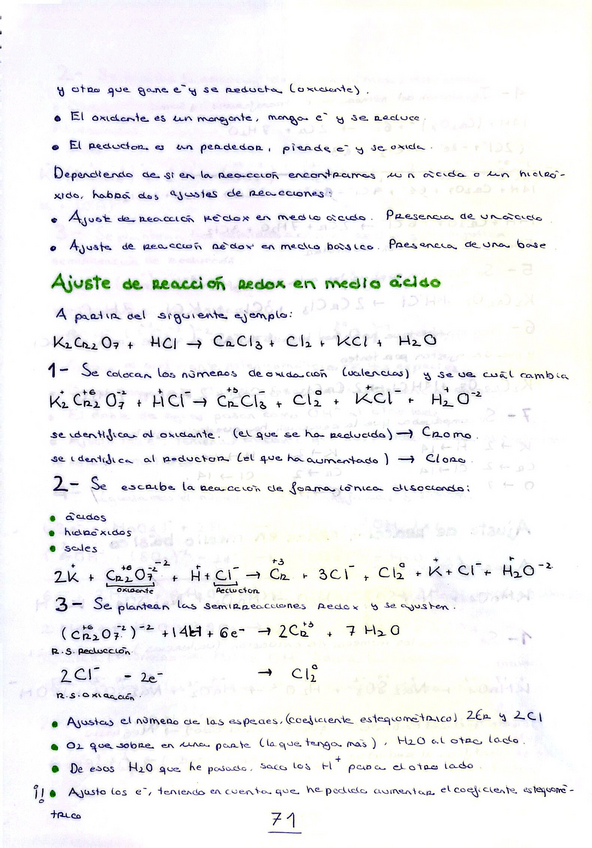 y otro que gane e⁻ y se reducta (oxidante).
• El oxidante es un mangante, manga e⁻ y se reduce
• El Reductor es un perdedor, pierde e⁻ y se oxida.
Dependiendo de si en la reacción encontramos un ácido o un hidró-
xido, habrá dos ajustes de reacciones:
• Ajuste de reacción Redox en medio ácido. Presencia de un ácido
• Ajuste de reacción Redox en medio básico. Presencia de una base
Ajuste de Reacción Redox en medio ácido
A partir del siguiente ejemplo:
K₂Cr₂O₇ + HCl → CrCl₃ + Cl₂ + KCl + H₂O
1- Se colocan los números de oxidación (valencias) y se ve cuál cambia
K₂⁺Cr₂⁺⁶O₇⁻² + H⁺Cl⁻ → Cr⁺³Cl₃⁻ + Cl₂⁰ + K⁺Cl⁻ + H₂⁺O⁻²
se identifica al oxidante. (el que se ha reducido) → Cromo.
se identifica al reductor (el que ha aumentado) → Cloro.
2- Se escribe la reacción de forma iónica disociando:
• ácidos
• hidróxidos
• sales
2K⁺ + (Cr₂⁺⁶O₇⁻²)⁻² + H⁺ + Cl⁻ → Cr⁺³ + 3Cl⁻ + Cl₂⁰ + K⁺ + Cl⁻ + H₂⁺O⁻²
oxidante Reductor
3- Se plantean las semirreacciones redox y se ajusten.
(Cr₂⁺⁶O₇⁻²)⁻² + 14H⁺ + 6e⁻ → 2Cr⁺³ + 7 H₂O
R.S. Reducción.
2Cl⁻ - 2e⁻ → Cl₂⁰
R.S. Oxidación.
• Ajustas el número de las especies, (coeficiente estequiométrico) 2Cr y 2Cl
• O₂ que sobre en una parte (la que tenga más), H₂O al otro lado.
• De esos H₂O que he pasado, saco los H⁺ para el otro lado.
¡! • Ajusto los e⁻, teniendo en cuenta que he podido aumentar el coeficiente estequomé-
trico
71